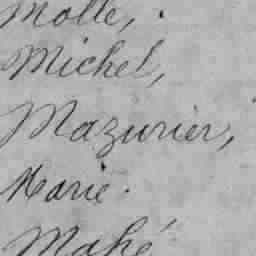 Molle,
Michel,
Mazurier,
Marie.
Mahé